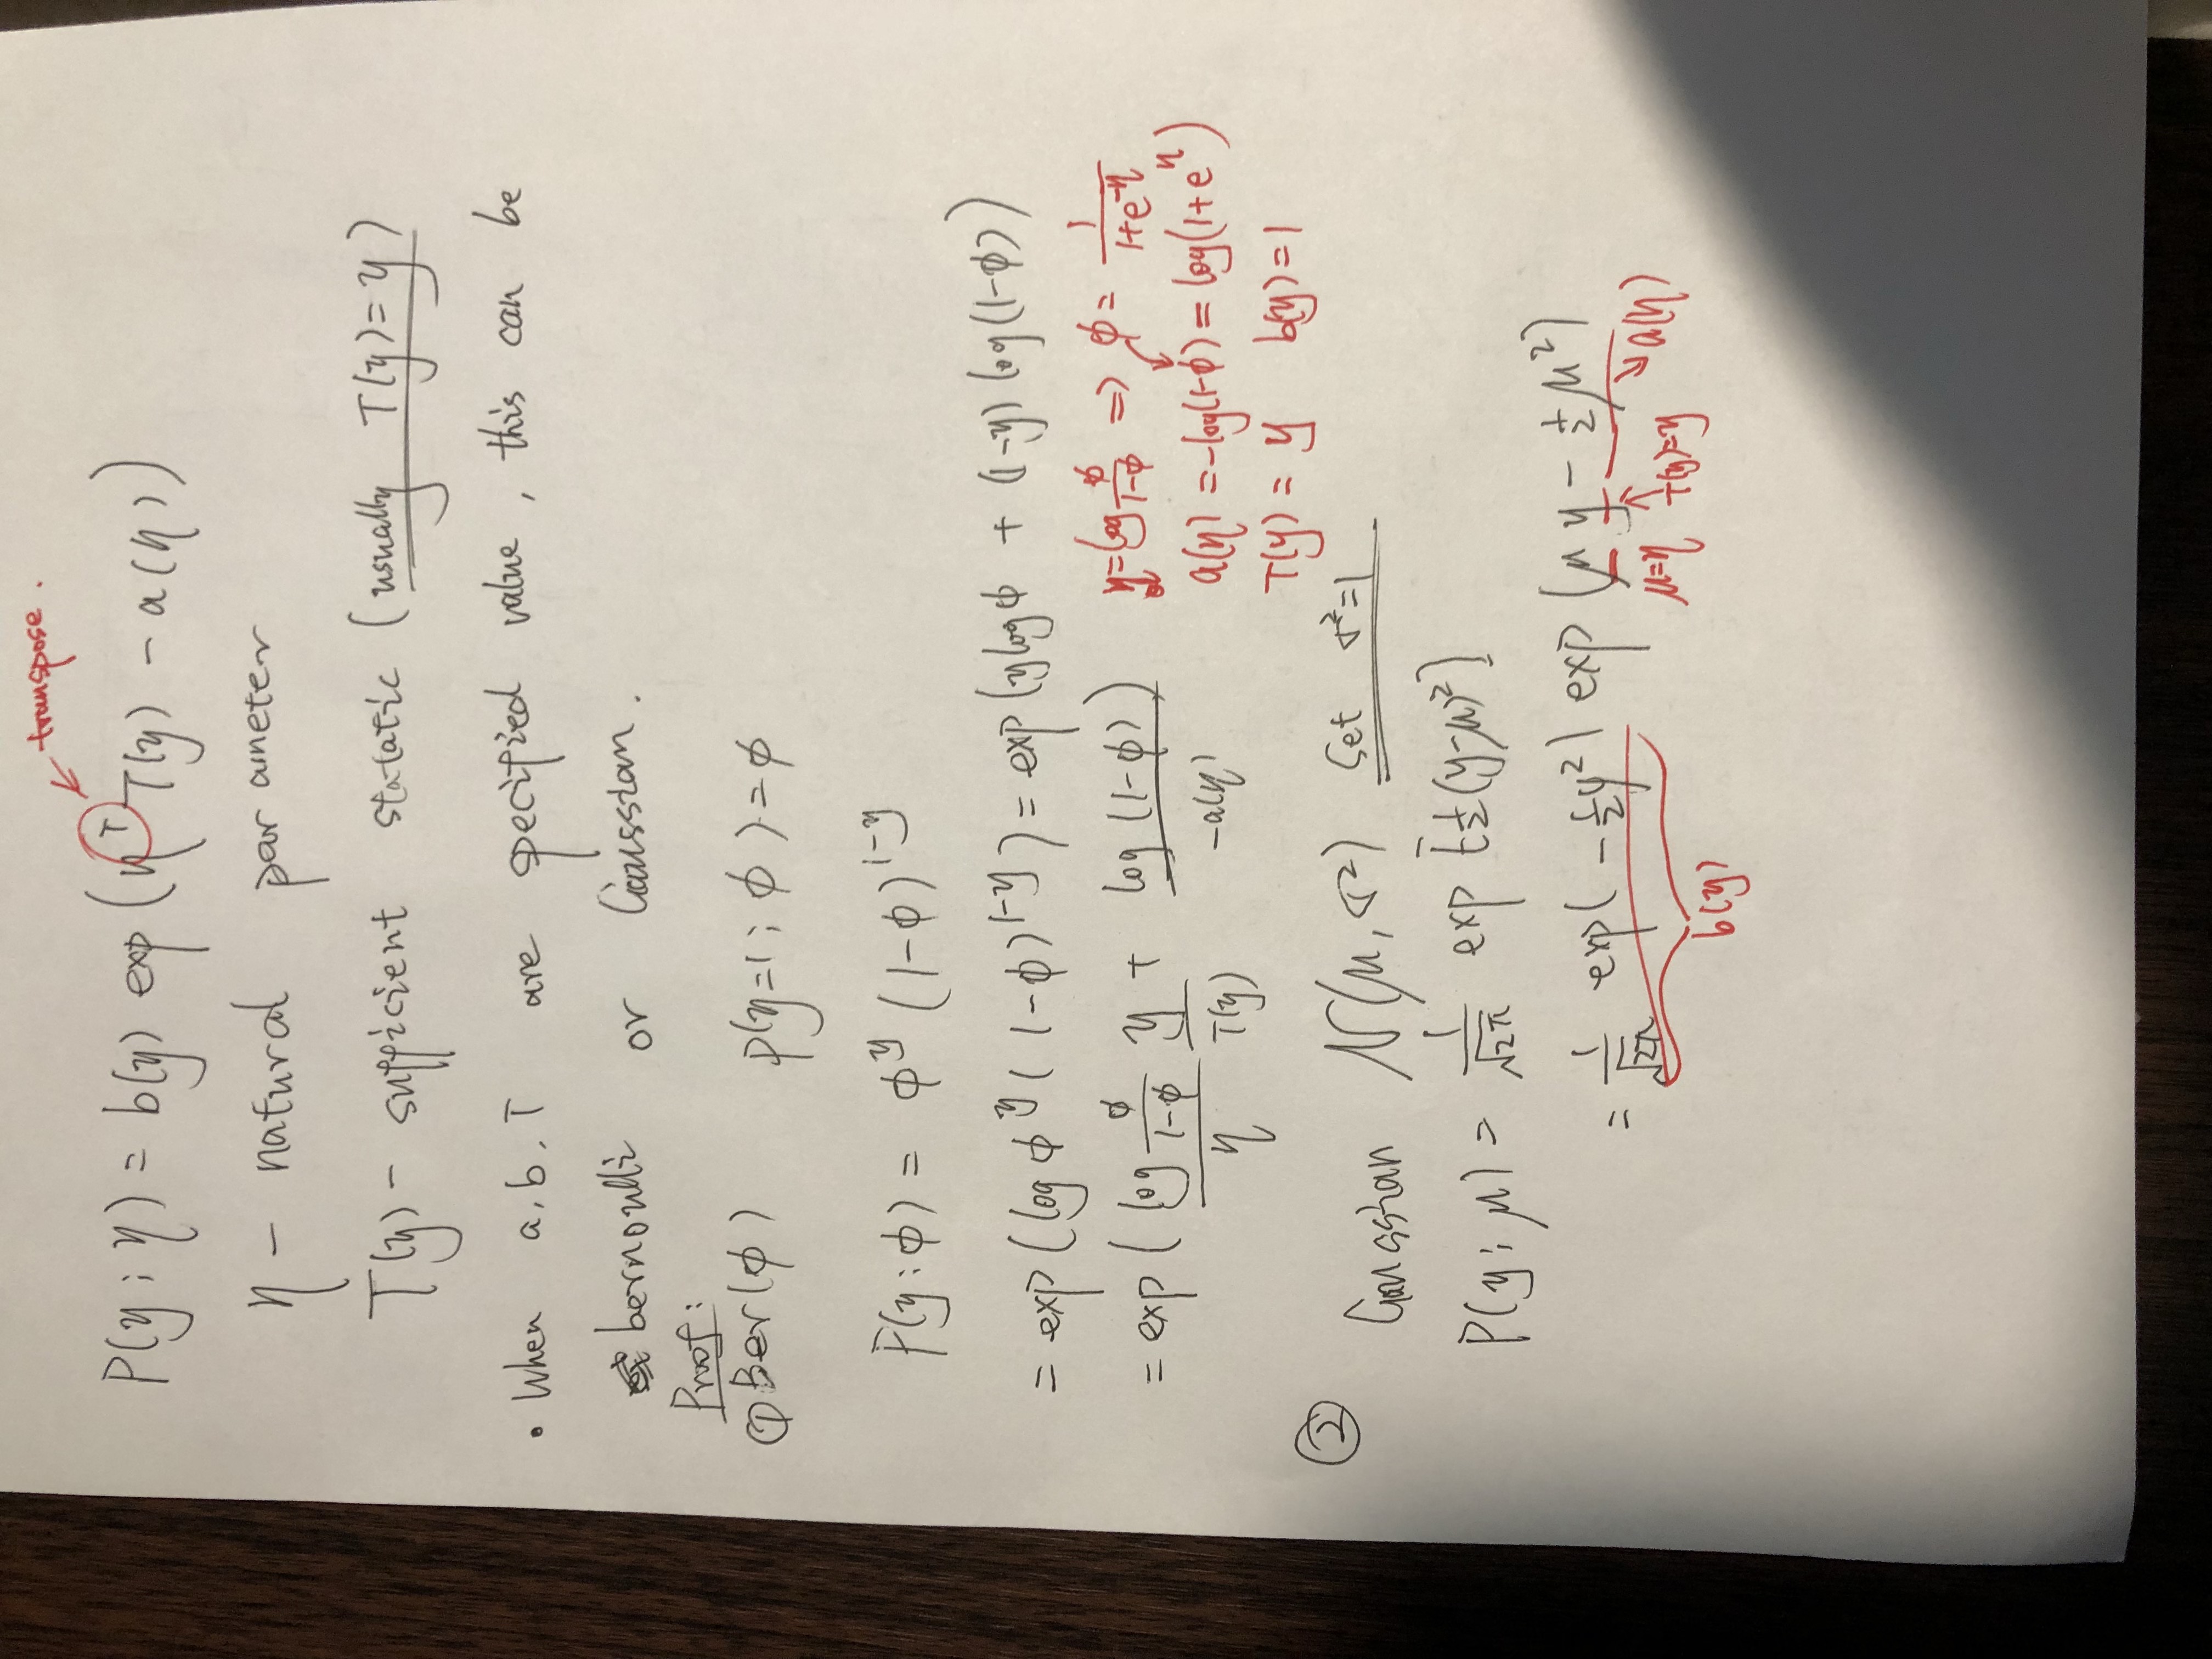 transpose.
P(y; η) = b(y) exp(η^T T(y) - a(η))
η - natural parameter
T(y) - sufficient statatic (usually T(y)=y)
• When a, b, T are specified value, this can be
bernoulli or Gaussian.
Proof:
① Ber(φ) p(y=1; φ) = φ
F(y; φ) = φ^y (1-φ)^{1-y}
= exp(log φ^y (1-φ)^{1-y}) = exp(y log φ + (1-y) log(1-φ))
= exp(log φ/(1-φ) y + log(1-φ))
η T(y) -a(η)
η = log φ/(1-φ) => φ = 1/(1+e^{-η})
a(η) = -log(1-φ) = log(1+e^η)
T(y) = y b(y) = 1
②
Gaussian N(μ, σ²) Set σ²=1
P(y; μ) = 1/√2π exp[-½(y-μ)²]
= 1/√2π exp(-½y²) exp(μy - ½μ²)
b(y) μ=η T(y)=y a(η)